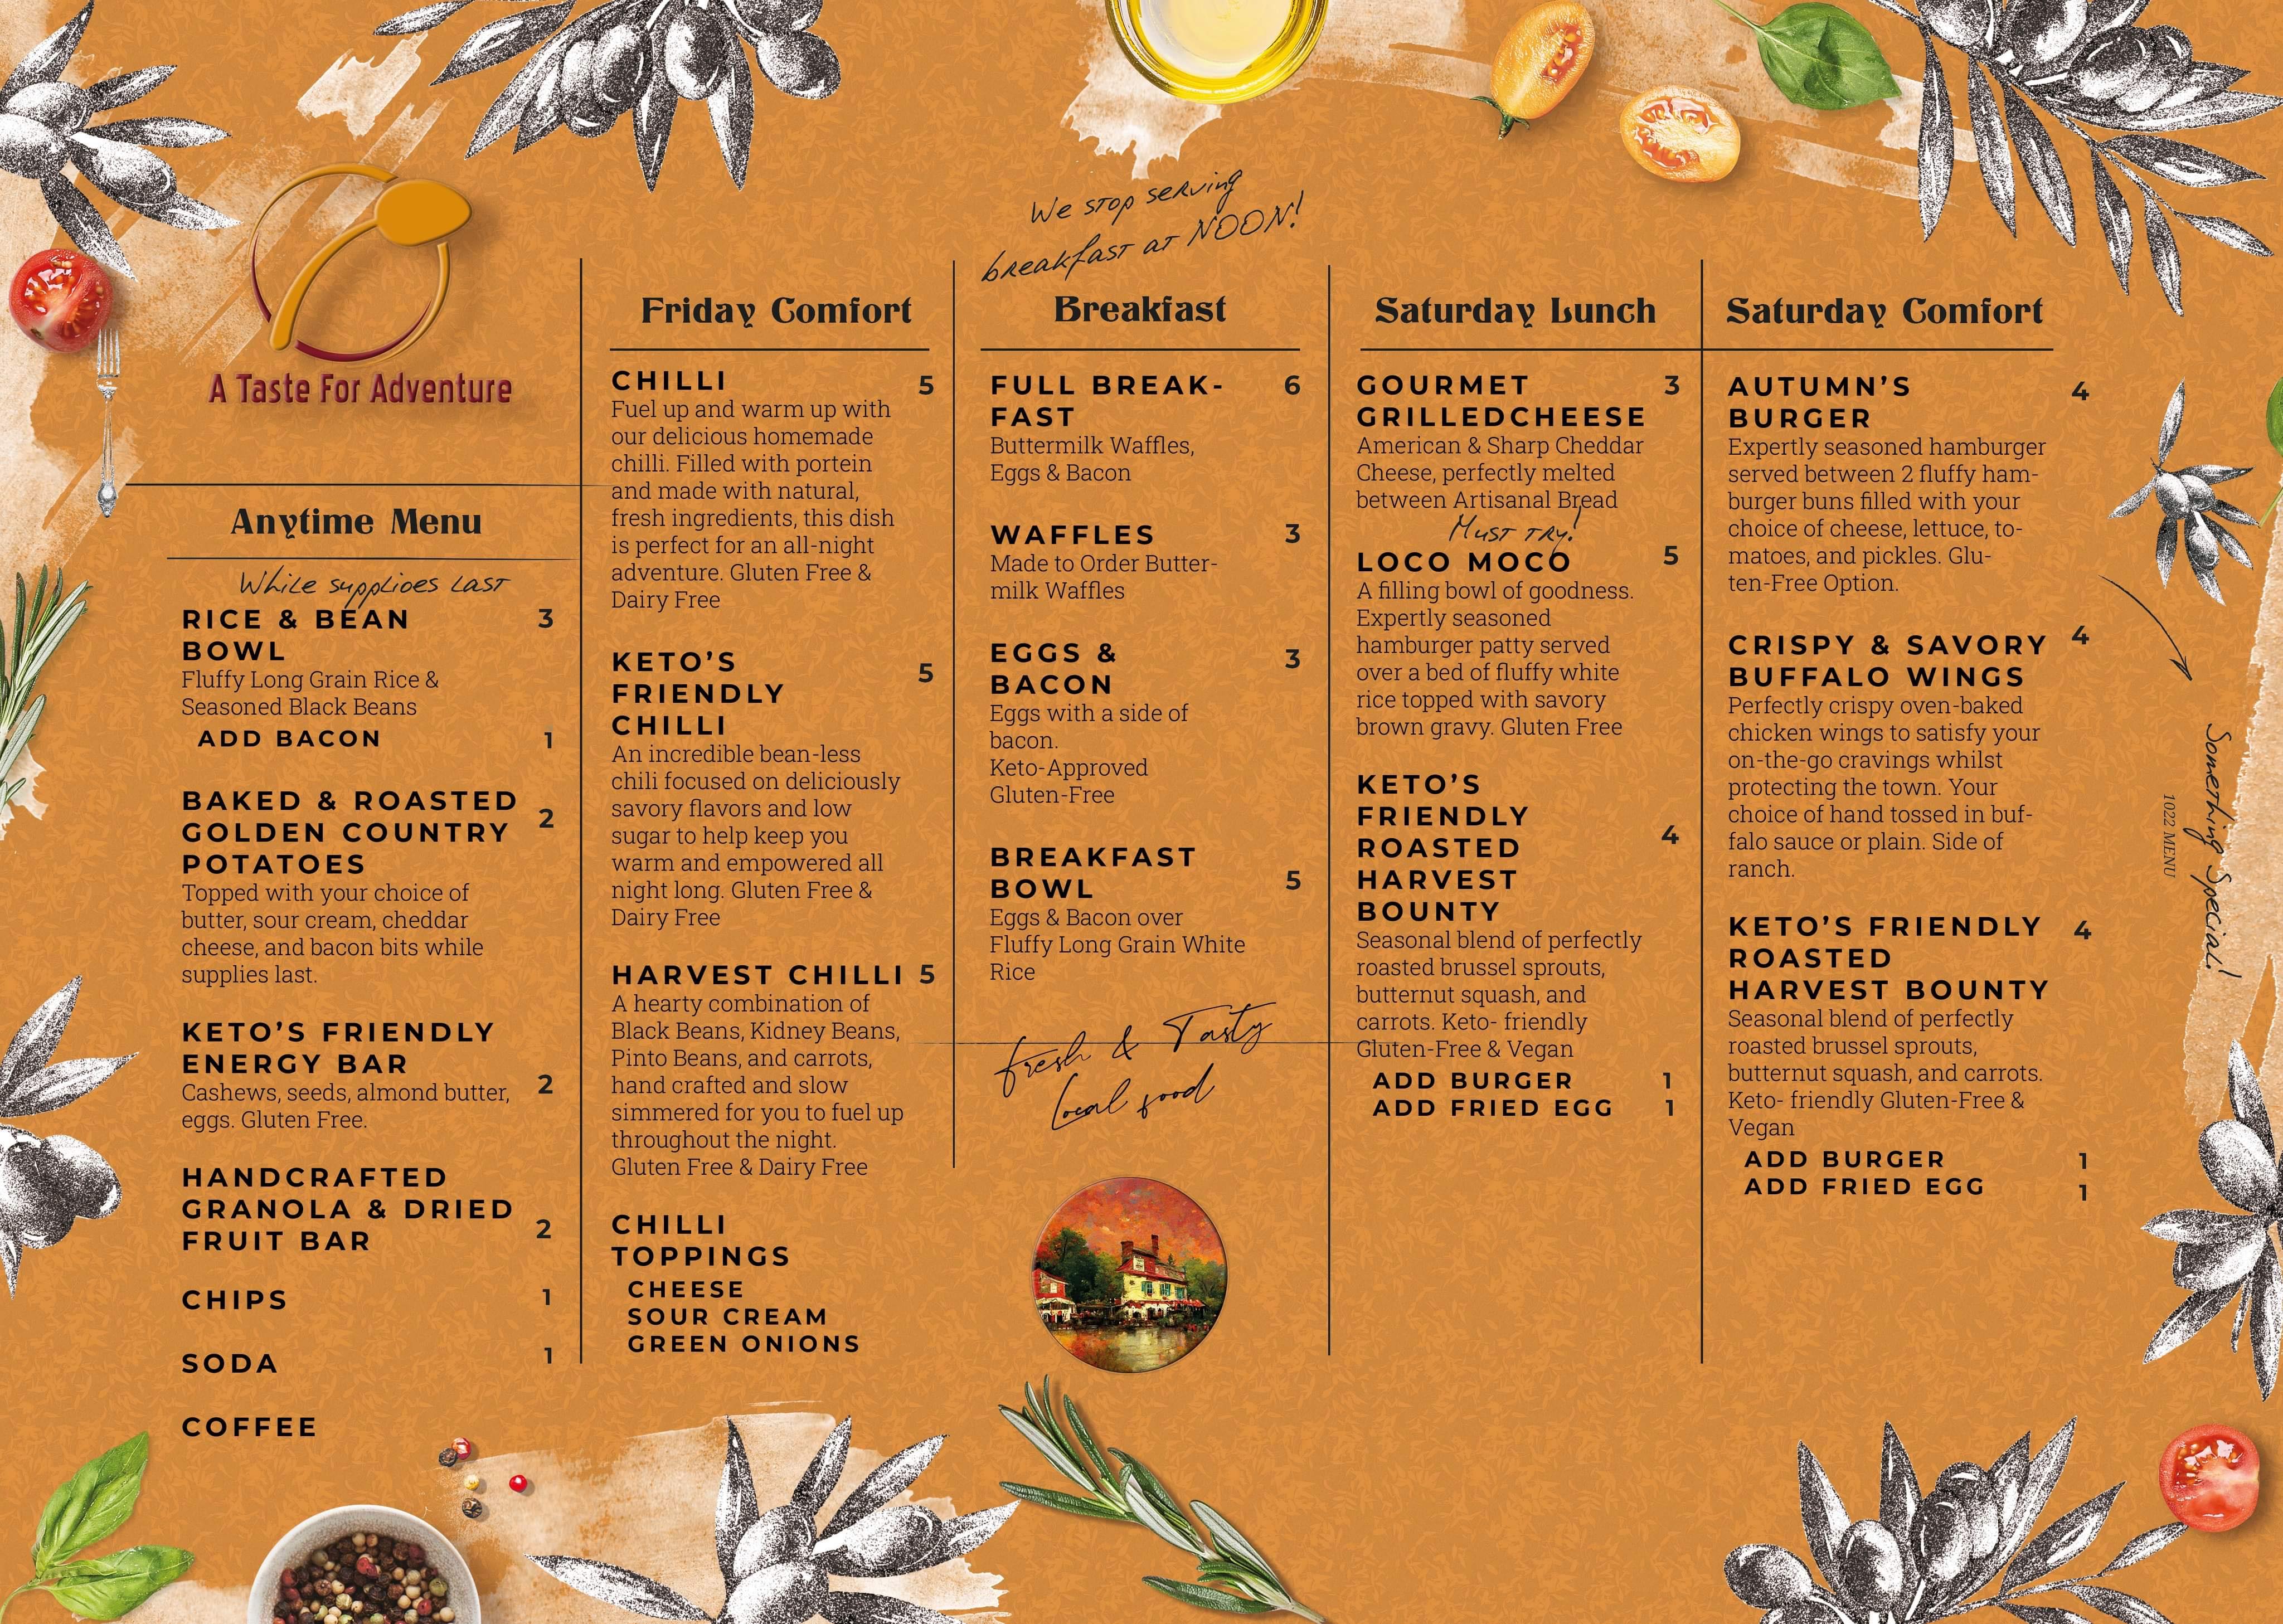 A Taste For Adventure
Anytime Menu
While supplioes last
RICE & BEAN 3
BOWL
Fluffy Long Grain Rice &
Seasoned Black Beans
ADD BACON 1
BAKED & ROASTED
GOLDEN COUNTRY 2
POTATOES
Topped with your choice of
butter, sour cream, cheddar
cheese, and bacon bits while
supplies last.
KETO'S FRIENDLY
ENERGY BAR
Cashews, seeds, almond butter, 2
eggs. Gluten Free.
HANDCRAFTED
GRANOLA & DRIED
FRUIT BAR 2
CHIPS 1
SODA 1
COFFEE
Friday Comfort
CHILLI 5
Fuel up and warm up with
our delicious homemade
chilli. Filled with portein
and made with natural,
fresh ingredients, this dish
is perfect for an all-night
adventure. Gluten Free &
Dairy Free
KETO'S 5
FRIENDLY
CHILLI
An incredible bean-less
chili focused on deliciously
savory flavors and low
sugar to help keep you
warm and empowered all
night long. Gluten Free &
Dairy Free
HARVEST CHILLI 5
A hearty combination of
Black Beans, Kidney Beans,
Pinto Beans, and carrots,
hand crafted and slow
simmered for you to fuel up
throughout the night.
Gluten Free & Dairy Free
CHILLI
TOPPINGS
CHEESE
SOUR CREAM
GREEN ONIONS
We stop serving
breakfast at NOON!
Breakfast
FULL BREAK- 6
FAST
Buttermilk Waffles,
Eggs & Bacon
WAFFLES 3
Made to Order Butter-
milk Waffles
EGGS & 3
BACON
Eggs with a side of
bacon.
Keto-Approved
Gluten-Free
BREAKFAST
BOWL 5
Eggs & Bacon over
Fluffy Long Grain White
Rice
Fresh & Tasty
Local food
Saturday Lunch
GOURMET 3
GRILLEDCHEESE
American & Sharp Cheddar
Cheese, perfectly melted
between Artisanal Bread
Must try!
LOCO MOCO 5
A filling bowl of goodness.
Expertly seasoned
hamburger patty served
over a bed of fluffy white
rice topped with savory
brown gravy. Gluten Free
KETO'S
FRIENDLY
ROASTED 4
HARVEST
BOUNTY
Seasonal blend of perfectly
roasted brussel sprouts,
butternut squash, and
carrots. Keto- friendly
Gluten-Free & Vegan
ADD BURGER 1
ADD FRIED EGG 1
Saturday Comfort
AUTUMN'S 4
BURGER
Expertly seasoned hamburger
served between 2 fluffy ham-
burger buns filled with your
choice of cheese, lettuce, to-
matoes, and pickles. Glu-
ten-Free Option.
CRISPY & SAVORY 4
BUFFALO WINGS
Perfectly crispy oven-baked
chicken wings to satisfy your
on-the-go cravings whilst
protecting the town. Your
choice of hand tossed in buf-
falo sauce or plain. Side of
ranch.
KETO'S FRIENDLY 4
ROASTED
HARVEST BOUNTY
Seasonal blend of perfectly
roasted brussel sprouts,
butternut squash, and carrots.
Keto- friendly Gluten-Free &
Vegan
ADD BURGER 1
ADD FRIED EGG 1
Something Special!
1022 MENU